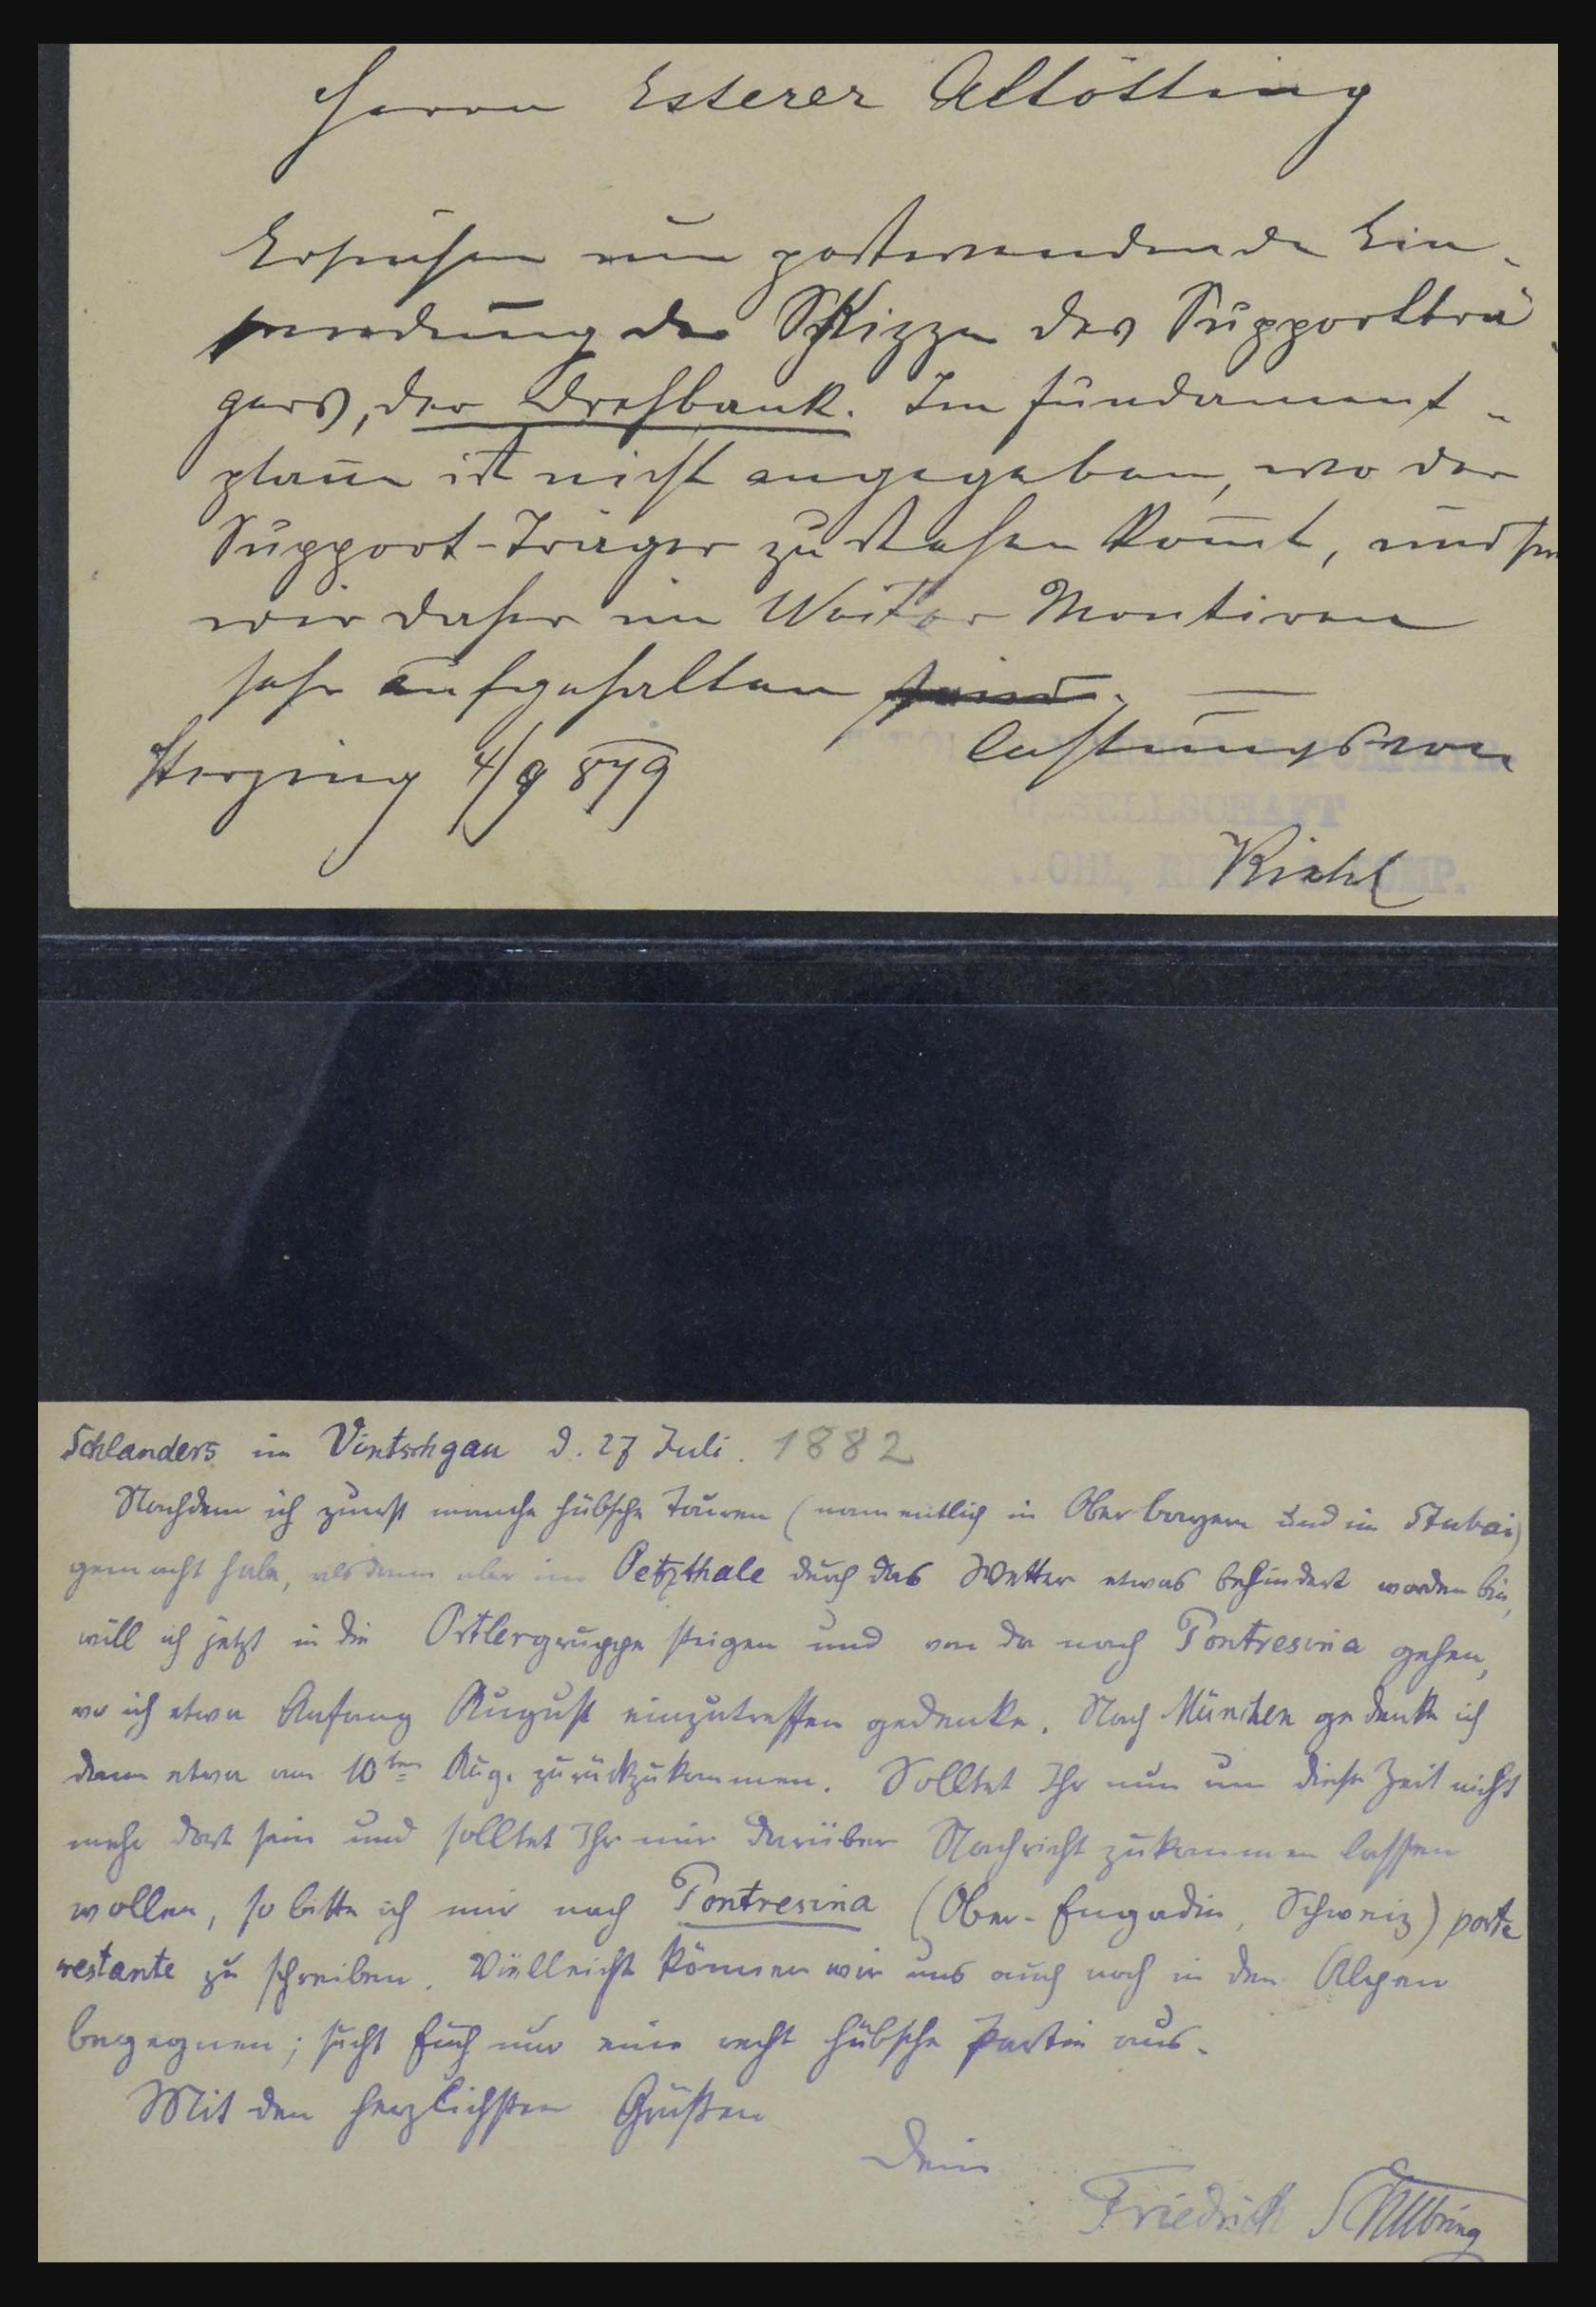 Herrn Esterer Altötting
Ersuchen um postwendende Ein-
sendung der Skizze des Supportträ
gers, der Drehbank. Im Fundament-
plane ist nicht angegeben, wo der
Support-Träger zu stehen kom̄t, und
wir daher im Weiter Montiren
sehr aufgehalten sind.
Achtungsvoll
Sterzing 4/9 879
GESELLSCHAFT
Riehl
Schlanders im Vintschgau d. 27 Juli. 1882
Nachdem ich zuerst manche hübsche Touren (namentlich in Oberbayern und im Stubai)
gemacht habe, alsdann aber im Oetzthale durch das Wetter etwas behindert worden bin,
will ich jetzt in die Ortlergruppe steigen und von da nach Pontresina gehen,
wo ich etwa Anfang August einzutreffen gedenke. Nach München gedenke ich
dann etwa am 10ten Aug. zurückzukommen. Solltet Ihr nun um diese Zeit nicht
mehr dort sein und solltet Ihr mir darüber Nachricht zukommen lassen
wollen, so bitte ich mir nach Pontresina (Ober-Engadin, Schweiz) poste
restante zu schreiben. Vielleicht können wir uns auch noch in den Alpen
begegnen; sucht Euch nur eine recht hübsche Partie aus.
Mit den herzlichsten Grüßen
Dein
Friedrich